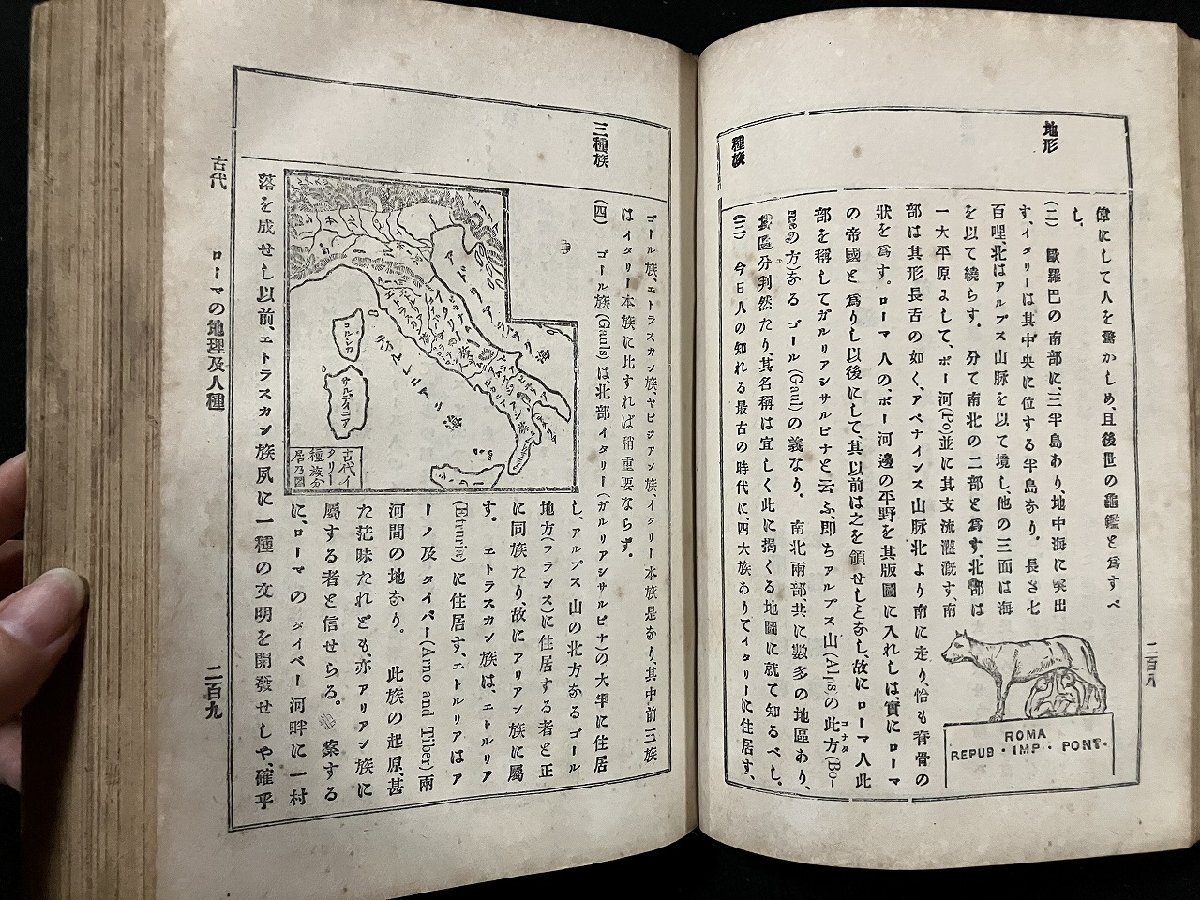 地形
種族
偉にして人を驚かしめ、且後世の龜鑑と爲すべ
し。
(二) 歐羅巴の南部に、三半島あり地中海に突出
す、イタリーは其中央に位する半島なり。長さ七
百哩、北はアルプス山脉を以て境し、他の三面は海
を以て繞らす。分て南北の二部と爲す、北部は
一大平原よして、ポー河(Po)並に其支流灌漑す、南
部は其形長舌の如く、アペナインス山脉北より南に走り、恰も脊骨の
狀を爲す。ローマ人の、ポー河邊の平野を其版圖に入れしは實にローマ
の帝國と爲りし以後にして、其以前は之を領せしとなし、故にローマ人此
部を稱してガルリアシサルピナと云ふ、即ちアルプス山(Alpsの此方(Bo-
neの方)なるゴール(Gaul)の義なり。南北兩部、共に數多の地區あり、
其區分判然たり其名稱は宜しく此に揭くる地圖に就て知るべし。
(三) 今日人の知れる最古の時代に、四大族ありてイタリーに住居す、
コナタ
ROMA
REPUB・IMP・PONT・
二百八
三種族
ゴール族、エトラスカン族、ヤピジアン族、イタリー本族是なり、其中前三族
はイタリー本族に比すれば稍重要ならず。
(四) ゴール族(Gauls)は北部イタリー(ガルリアシサルピナ)の大半に住居
し、アルプス山の北方なるゴール
地方(フランス)に住居する者と正
に同族たり、故にアリアン族に屬
す。エトラスカン族は、エトルリア
(Etruria)に住居す、エトルリアはア
ーノ及タイバー(Arno and Tiber)兩
河間の地なり。此族の起原、甚
た茫味たれども、亦アリアン族に
屬する者と信せらる。案する
に、ローマのタイベー河畔に一村
落を成せし以前、エトラスカン族夙に一種の文明を開發せしや、確乎
アドリア海
コルシカ
サルディニア
古代イ
タリー
種族分
居乃圖
古代 ローマの地理及人種
二百九